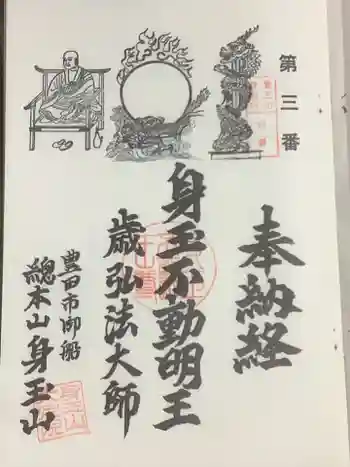 第三番
奉納経
身玉不動明王
歳弘法大師
豊田市御船
總本山身玉山